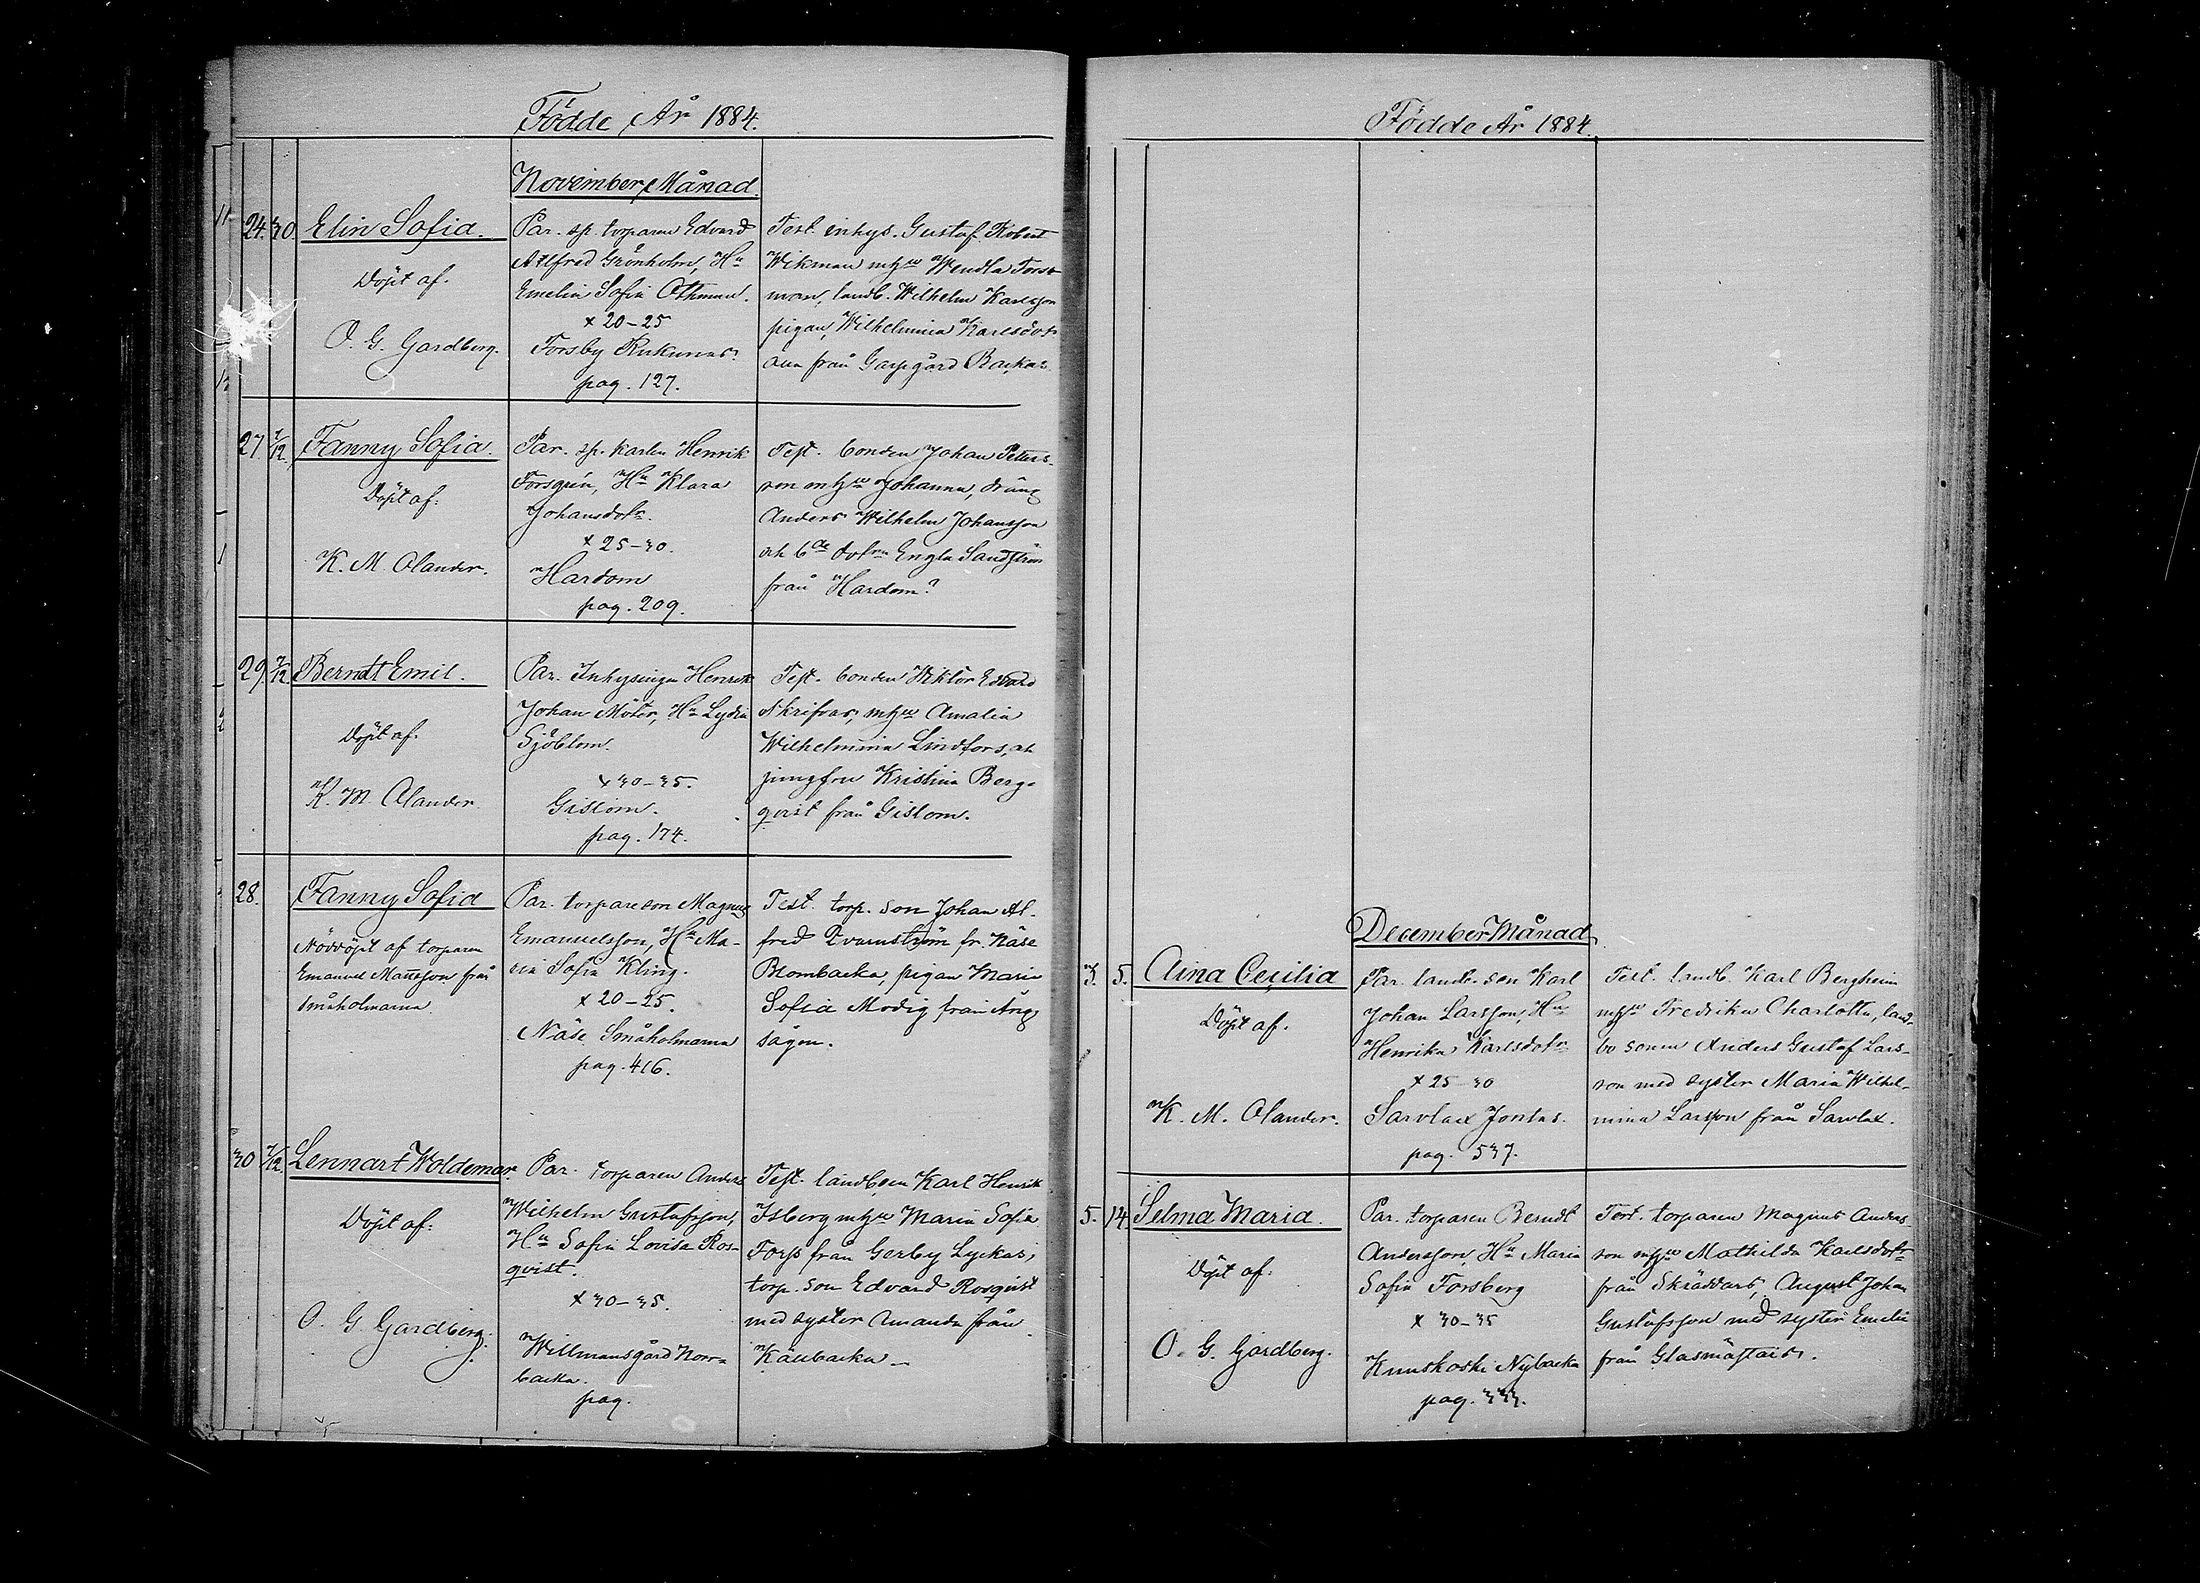 Födde År 1884.
November Månad.
24. 30. Elin Sofia.
Döpt af.
O. G. Gardberg.
Par. sp. torparen Edvard
Alfred Grönholm, Hu
Emelia Sofia Othman.
x 20–25
Forsby
pag. 127.
Test. inhys. Gustaf Robert
Wikman m hu Wendla Fors-
man, landb. Wilhelm Karlsson
pigan, Wilhelmina Karlsdotr
från Garpgård Backas
27 7/12 Fanny Sofia.
Döpt af.
K. M. Olander.
Par. sp. karlen Henrik
Forsgrén, Hu Klara
Johansdotr.
x 25–30.
Hardom
pag. 209.
Test. bonden Johan Peters-
son m hu Johanna, dräng
Anders Wilhelm Johansson
och bde dotrn Engla Sandström
från Hardom?
29. 7/12. Berndt Emil.
Döpt af.
K. M. Olander.
Par. Inhysingen Henrik
Johan Möter, Hu Lydia
Sjöblom.
x 30–35.
Gislom.
pag. 174.
Test. bonden Wiktor Edvard
Skrifvar, m hu Amalia
Wilhelmina Lindfors, och
jungfru Kristina Berg-
qvist från Gislom.
28. Fanny Sofia
Nöddöpt af torparen
Emanuel Mattsson från
Småholmarna.
Par. torpareson Magnus
Emanuelsson, Hu Ma-
ria Sofia Kling.
x 20–25.
Näse Småholmarna
pag. 416.
Test. torp. son Johan Al-
fred Qvarnström fr. Näse
Blombacka, pigan Maria
Sofia Modig från Ång-
sågen.
30 7/12 Lennart Woldemar.
Döpt af.
O. G. Gardberg.
Par. torparen Anders
Wilhelm Gustafsson,
Hu Sofia Lovisa Ros-
qvist.
x 30–35.
Willmansgård Norr-
backa.
pag.
Test. landbon Karl Henrik
Isberg m hu Maria Sofia
Forss från Gerby Lyckas,
torp. son Edvard Rosqvist
med syster Amanda från
Käubacka
Födde År 1884.
December Månad.
3. 5. Aina Cecilia
Döpt af.
K. M. Olander.
Par. landb. son Karl
Johan Larsson, Hu
Henrika Karlsdotr
x 25–30
Sarvlax Jontas.
pag. 537.
Test. landb. Karl Bergheim
m hu Fredrika Charlotta, land-
bo sonen Anders Gustaf Lars-
son med syster Maria Wilhel-
mina Larsson från Sarvlax.
5. 14. Selma Maria.
Döpt af.
O. G. Gardberg.
Par. torparen Berndt
Andersson, Hu Maria
Sofia Forsberg
x 30–35
Kuuskoski Nybacka
pag. 333.
Test. torparen Magnus Anders-
son m hu Mathilda Karlsdotr
från Skräddars, August Johan
Gustafsson med syster Emelie
från Glasmästars.